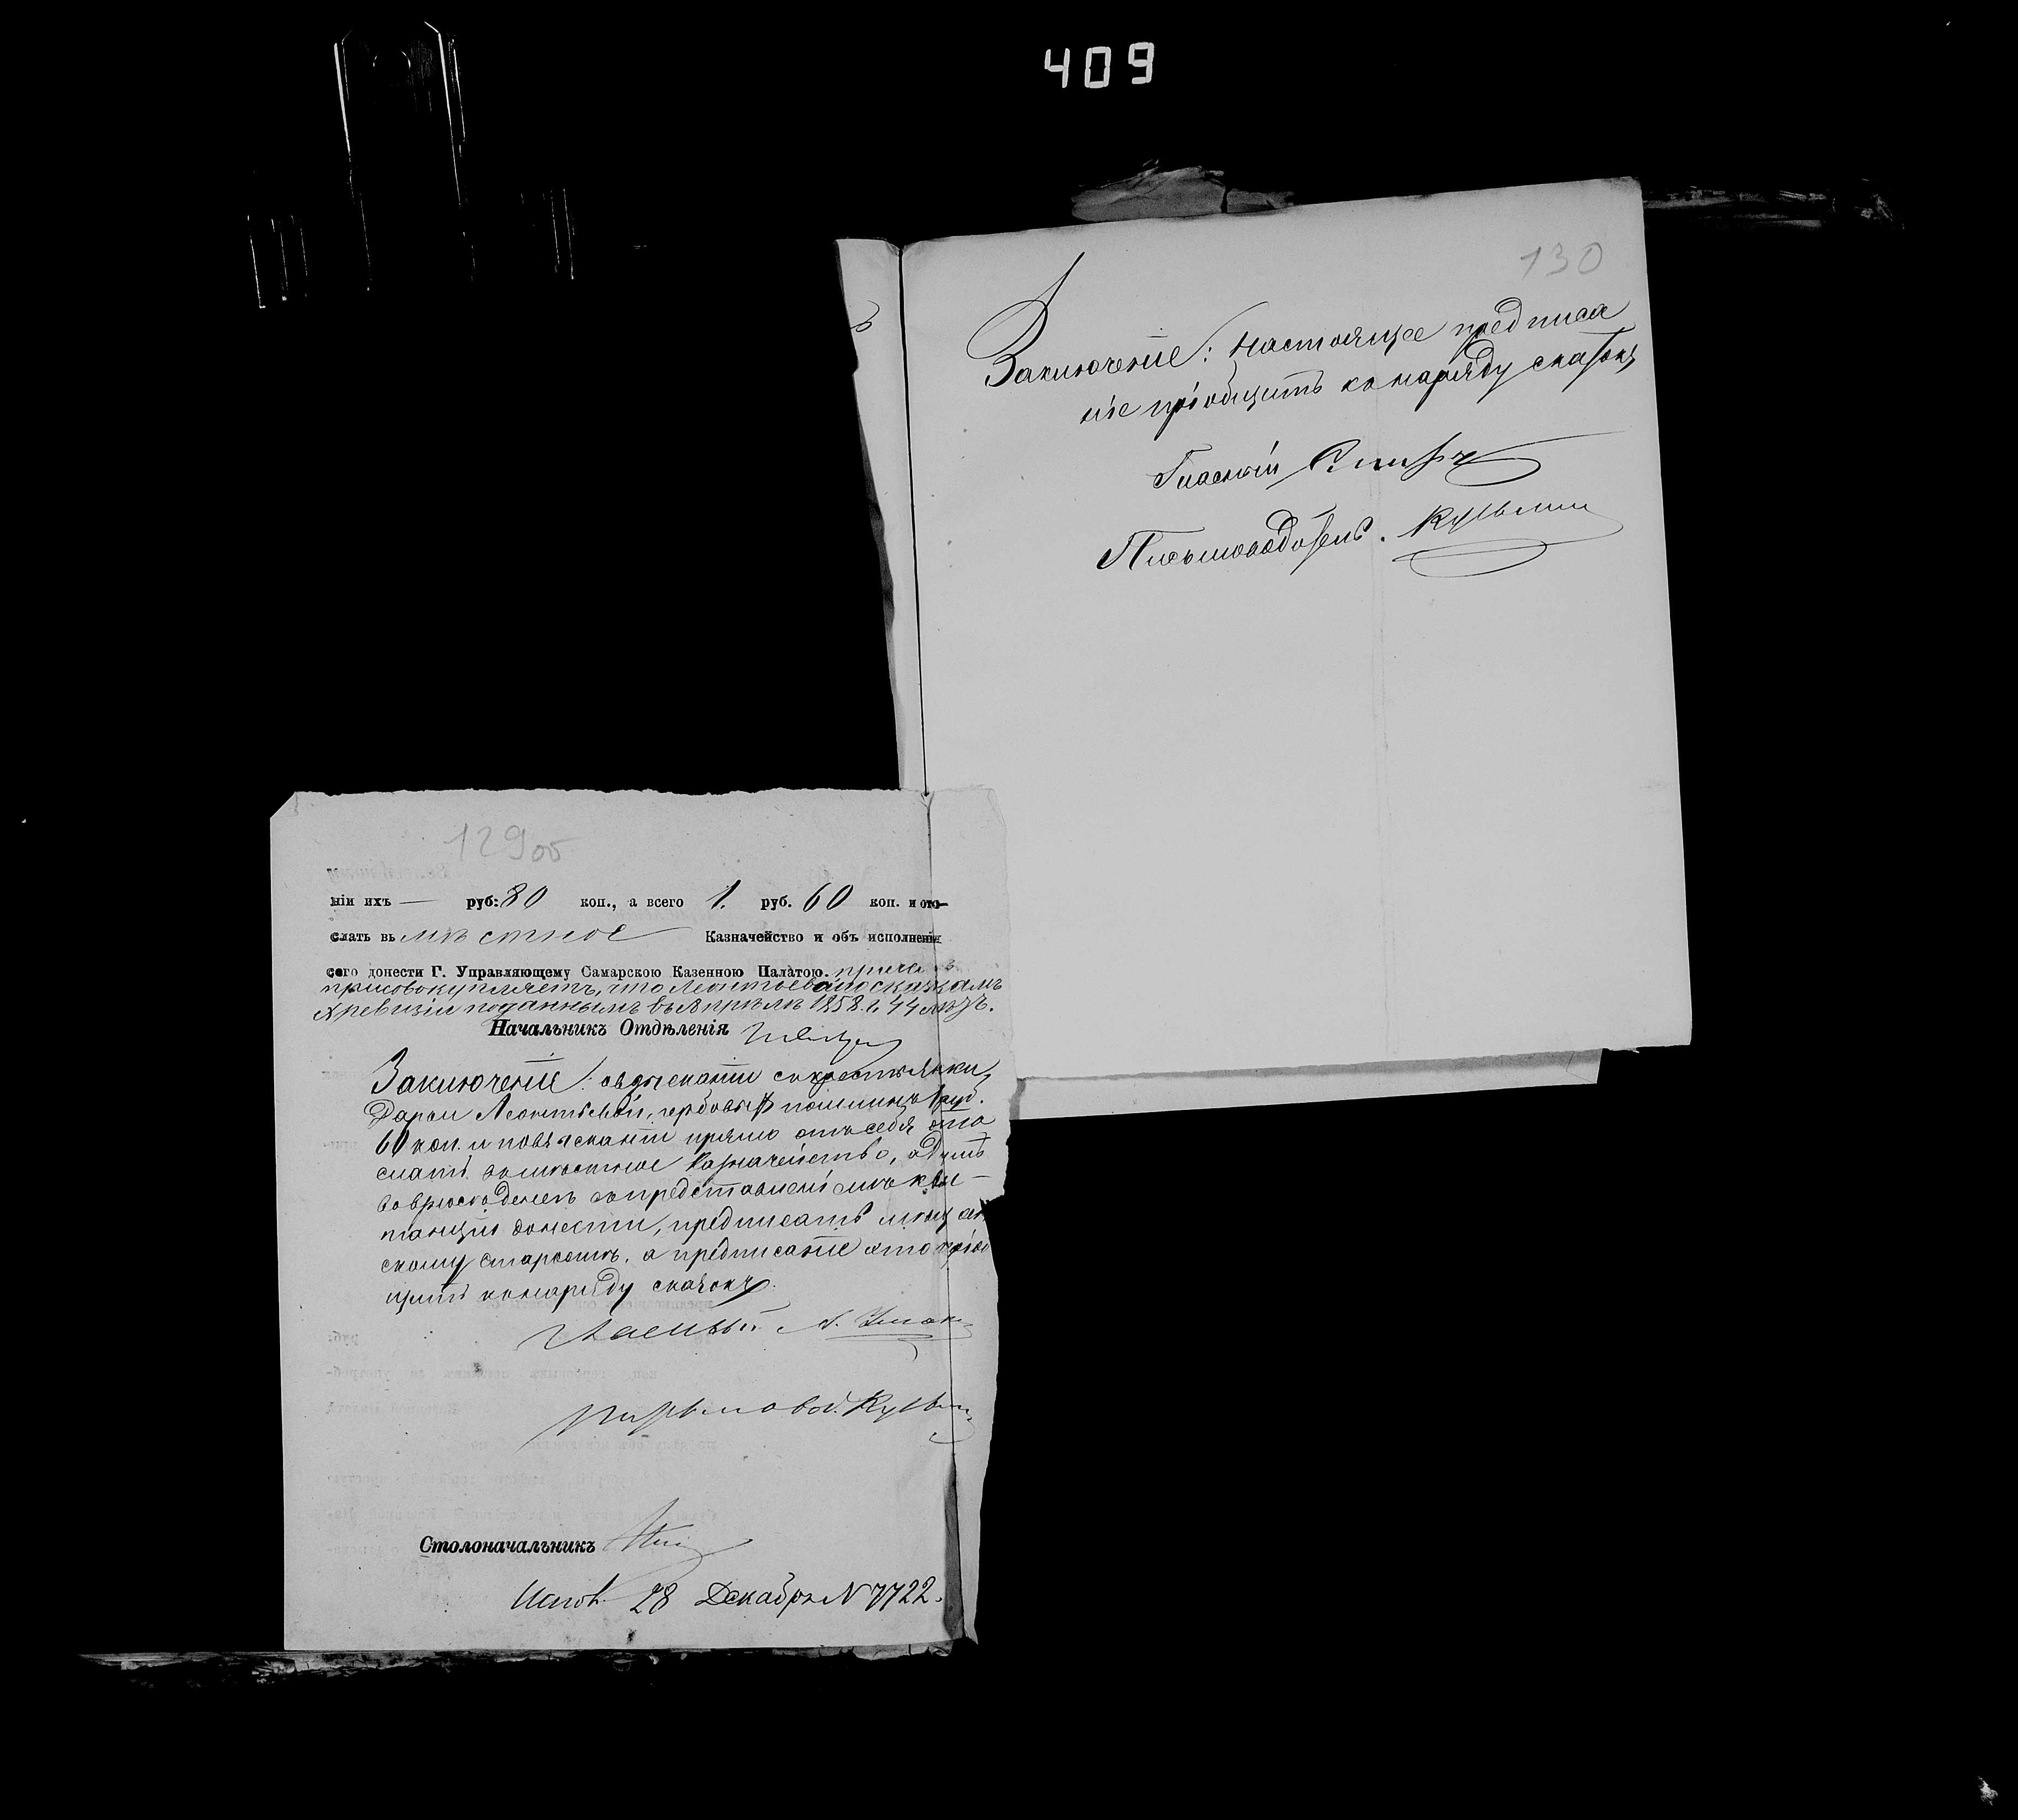 409
130
Заключеніе: Настоящее предписа
ніе пріобщить къ наряду сказокъ
Гласный
Письмоводитель. Кузьмин
129 об
ніи ихъ — руб: 80 коп., а всего 1. руб. 60 коп. и ото-
слать въ мѣстное Казначейство и объ исполненіи
сего донести Г. Управляющему Самарскою Казенною Палатою. причемъ
присовокупляетъ, что Леонтьева по сказкамъ
X ревизіи поданнымъ въ Апрѣлѣ 1858 г. 44 лѣтъ.
Начальникъ Отдѣленія
Заключеніе: о взысканіи съ крестьянки
Дарьи Леонтьевой, гербовыхъ пошлинъ 1 руб.
60 коп. и по взысканіи прямо отъ себя ото
слать въ мѣстное Казначейство, о чемъ
въ представленіемъ кви-
танціи донести, предписать мѣщан
скому старостѣ, а предписаніе это пріоб
щить къ наряду сказокъ.
Гласный
Письмовод. Кузьмин
Столоначальникъ
Испол. 28 Декабря № 7722.